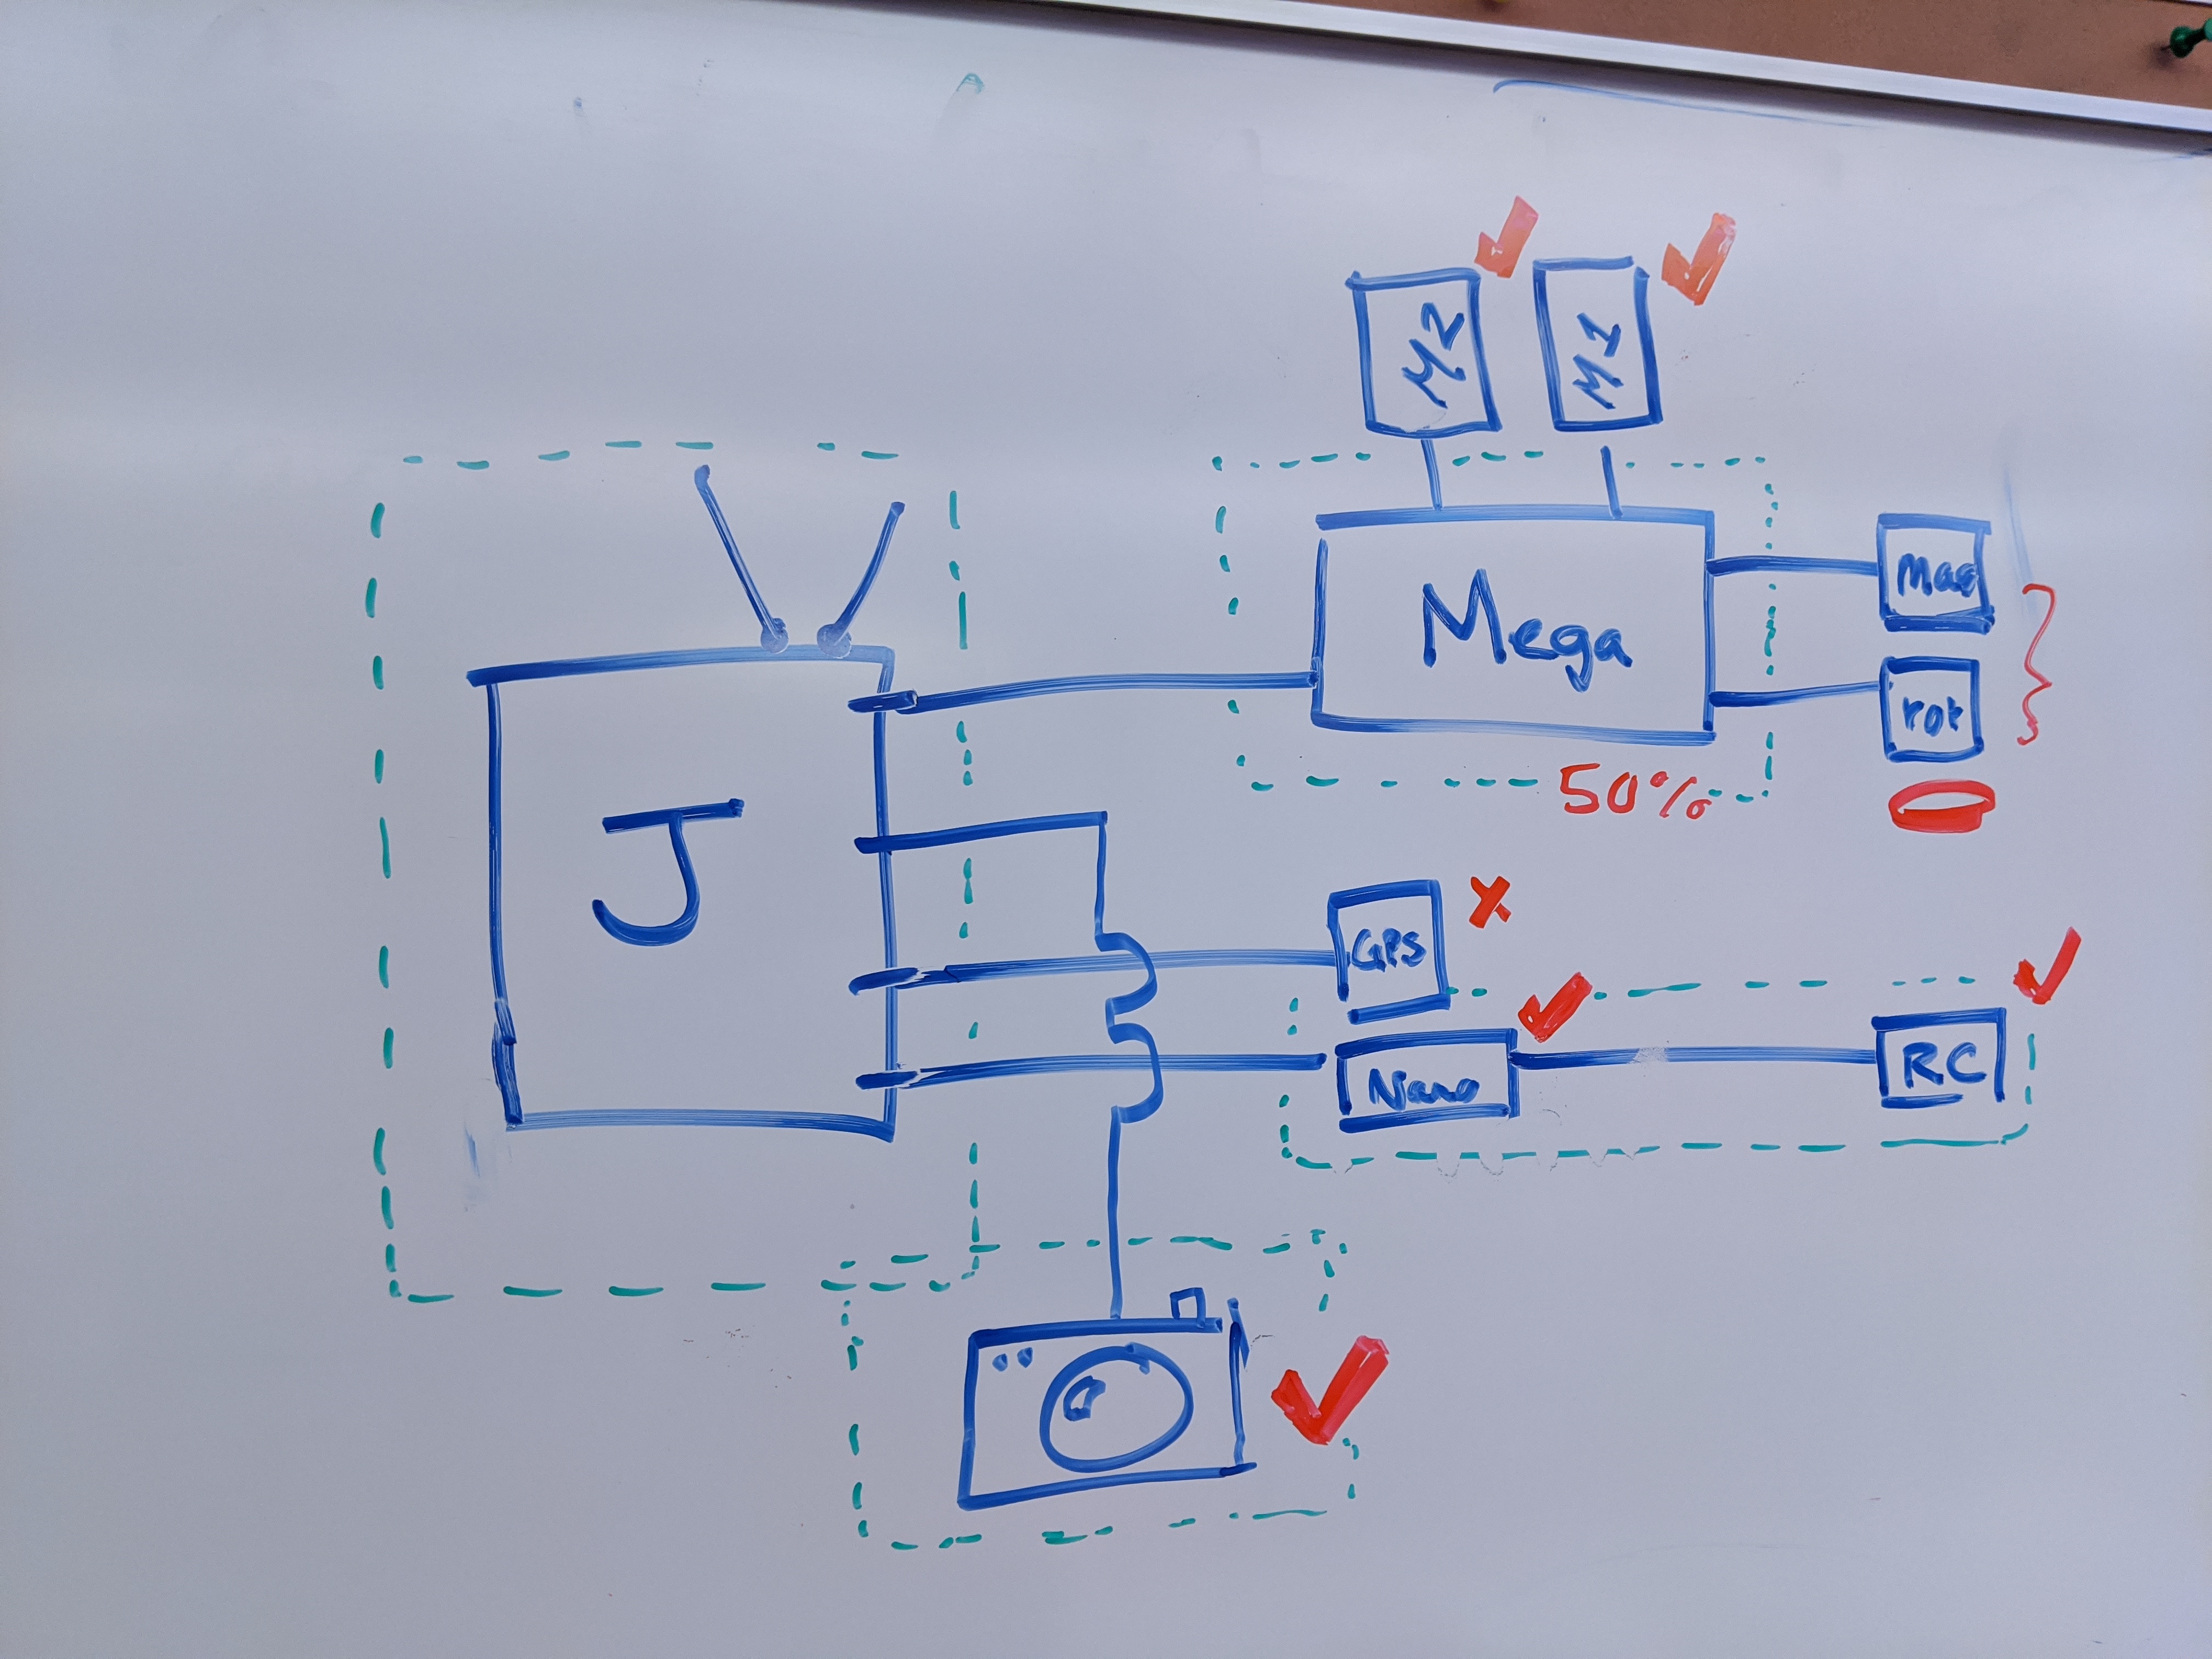 M2
M1
Mega
Mag
rot
50%
J
GPS
Nano
RC